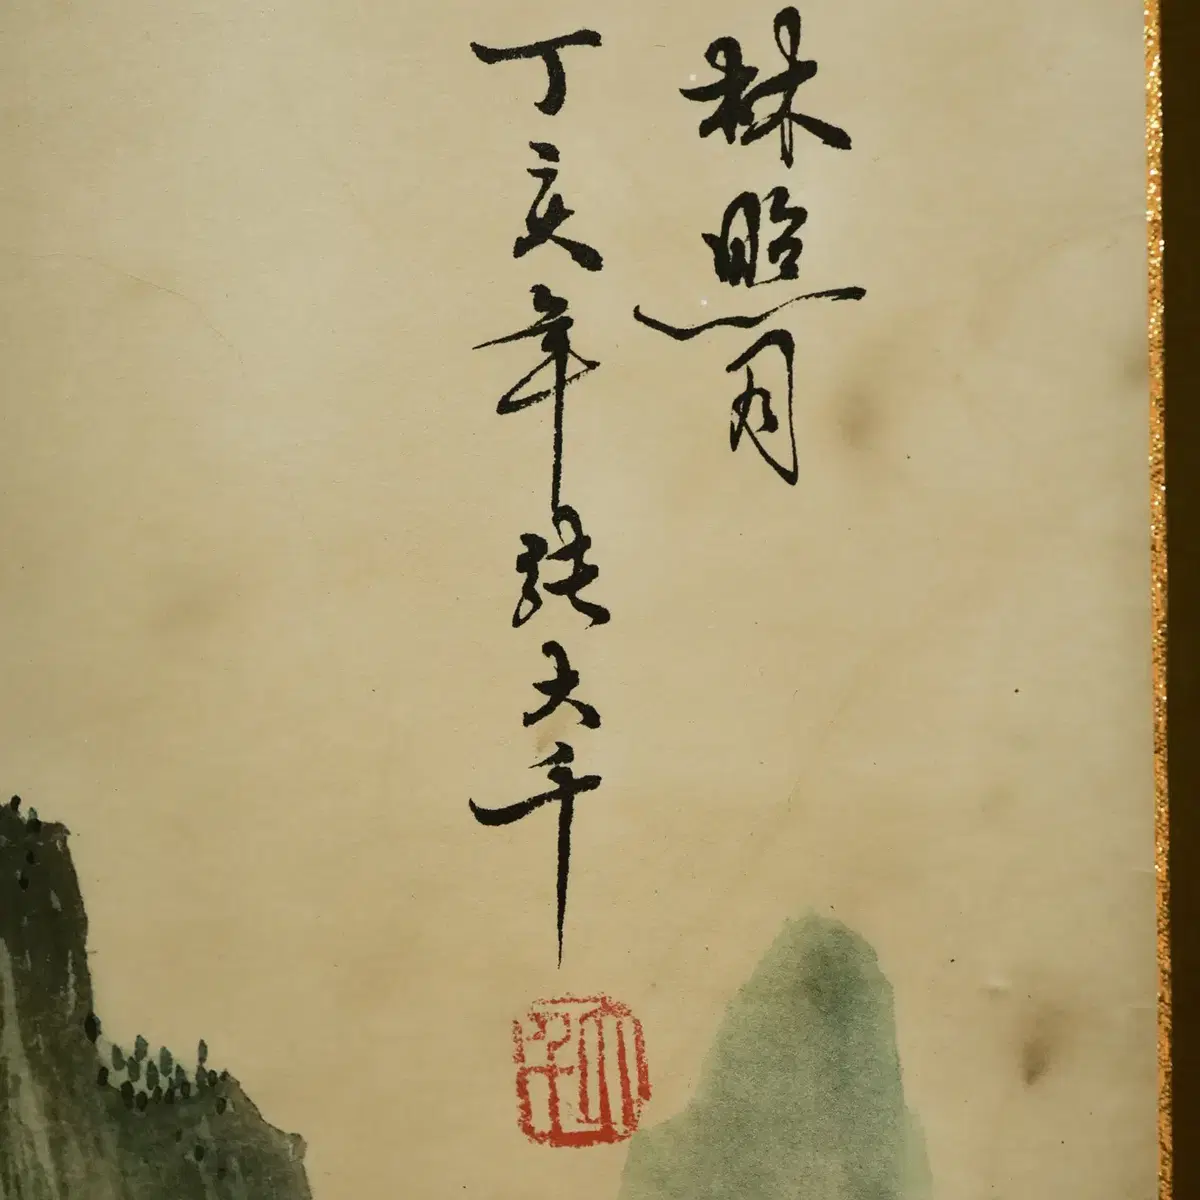 林照月
丁亥年張大千